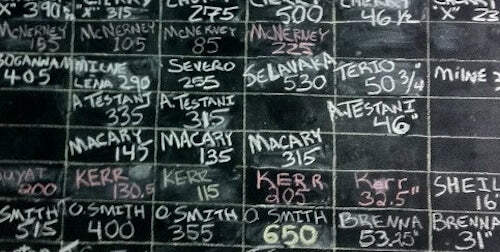 "X" 390 315 275 500 46 ½ "X" 23
McNERNEY McNERNEY McNERNEY McNERNEY
155 105 85 225
BOGANNAM MILNE SEVERO SELAVAKA TERIO MILNE
405 LENA 290 255 530 50 3/4"
A.TESTANI A.TESTANI A.TESTANI
335 315 46"
MACARY MACARY MACARY
145 135 315
KERR KERR KERR Kerr SHEIL
200 130.5 115 205 32.5" 16
SMITH O.SMITH O.SMITH O.SMITH BRENNA BRENNA
515 400 355 650 53.25" 31"